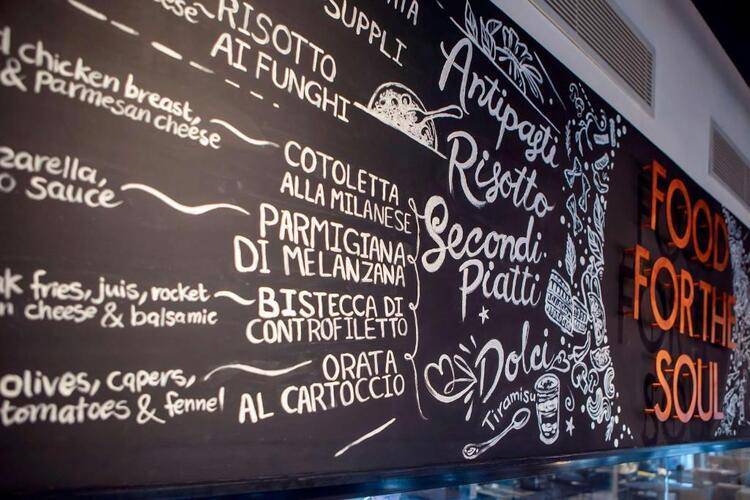 SUPPLI
RISOTTO
AI FUNGHI
chicken breast,
& Parmesan cheese
COTOLETTA
ALLA MILANESE
sauce
PARMIGIANA
DI MELANZANA
fries, juis, rocket
cheese & balsamic
BISTECCA DI
CONTROFILETTO
olives, capers,
tomatoes & fennel
ORATA
AL CARTOCCIO
Antipasti
Risotto
Secondi
Piatti
Dolci
Tiramisu
FOOD
FOR THE
SOUL